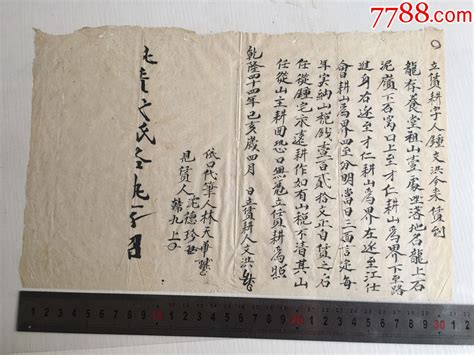 立賃耕字人鍾文洪今來賃到
龍春養堂祖山壹處坐落地名龍上石
泥嶺下石窩口上至才仁耕山為界下至路
邊身右逐至才仁耕山為界左逐至江仕
會耕山為界四至分明當日三面言定每
年實納山稅錢壹百貳拾文正自賃之后
任從鍾宅永遠耕作如有山稅不清其山
任從山主耕回恐口無憑立賃耕為照
乾隆四十四年己亥歲四月 日立賃耕人文洪
依口代筆人林天
見賃人 德珍
九上
7788.com